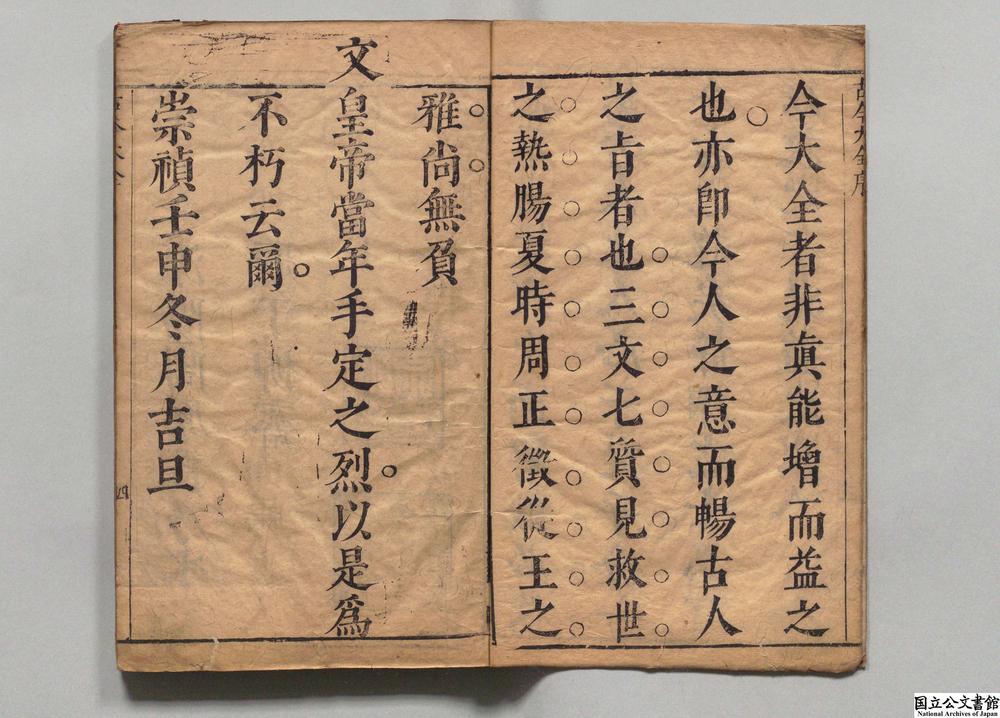 今大全者非眞能增而益之
也亦卽今人之意而暢古人
之旨者也三文七質見救世
之熱腸夏時周正徵從王之
雅尚無負
文皇帝當年手定之烈以是爲
不朽云爾
崇禎壬申冬月吉旦
国立公文書館
National Archives of Japan